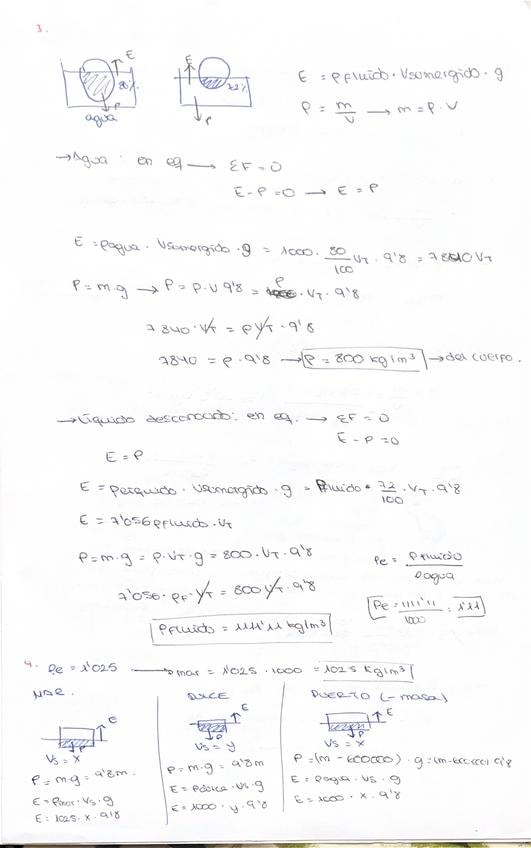 3.
E
80%
P
agua
E
72%
P
E = ρfluido · Vsumergido · g
ρ = m/V → m = ρ · V
→ Agua: en eq → ΣF = 0
E - P = 0 → E = P
E = ρagua · Vsumergido · g = 1000 · 80/100 VT · 9'8 = 7840 VT
P = m · g → P = ρ · V 9'8 = ρ · VT · 9'8
7840 · VT = ρ VT · 9'8
7840 = ρ · 9'8 → ρ = 800 kg/m³ → del cuerpo.
→ Líquido desconocido: en eq. → ΣF = 0
E - P = 0
E = P
E = ρlíquido · Vsumergido · g = ρfluido · 72/100 · VT · 9'8
E = 7'056 ρfluido · VT
P = m · g = ρ · VT · g = 800 · VT · 9'8
ρe = ρfluido/ρagua
7'056 · ρF · VT = 800 VT · 9'8
ρe = 1111'11/1000 = 1'11
ρfluido = 1111'11 kg/m³
4. ρe = 1'025 → ρmar = 1'025 · 1000 = 1025 kg/m³
MAR.
E
P
Vs = x
P = m · g = 9'8m.
E = ρmar · Vs · g
E = 1025 · x · 9'8
DULCE
E
P
Vs = y
P = m · g = 9'8m
E = ρdulce · Vs · g
E = 1000 · y · 9'8
PUERTO (- masa)
E
P
Vs = x
P = (m - 600000) · g = (m - 600000) 9'8
E = ρagua · Vs · g
E = 1000 · x · 9'8